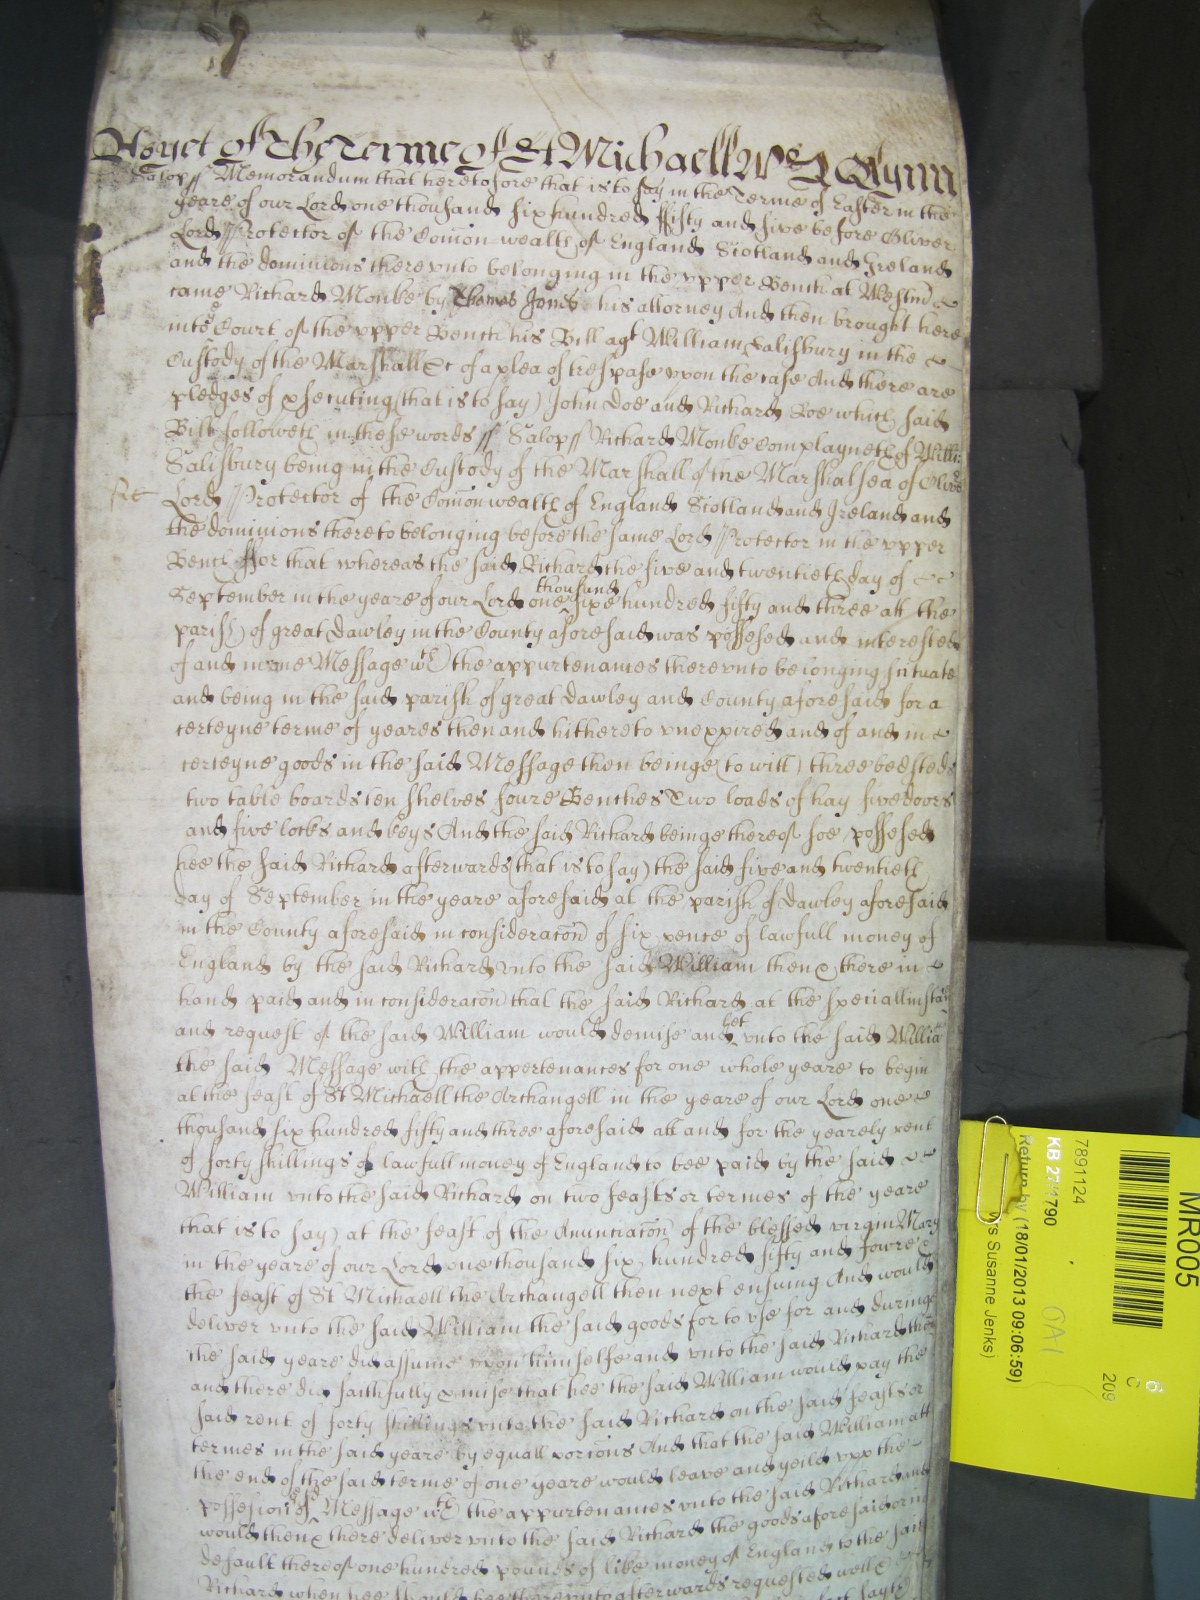 yet of the Terme of St Michaell Wes Glynn
Salop ss Memorandum that heretofore that is to say in the Terme of Easter in the
yeare of our Lord one thousand six hundred ffifty and five before Oliver
Lord Protector of the Comon wealth of England Scotland and Ireland
and the dominions there vnto belonging in the vpper Bench at Westm
came Richard Monke by Thomas Jones his attorney And then brought here
into ye Court of the vpper Bench his Bill agt William Salisbury in the
Custody of the Marshall &c of a plea of trespasse vpon the case And there are
pledges of psecuting (that is to say) John Doe and Richard Roe which said
Bill followeth in these words ss Salop ss Richard Monke Complayneth of Willi
Salisbury being in the Custody of the Marshall of the Marshalsea of Oliver
Lord Protector of the Comonwealth of England Scotland and Ireland and
the dominions thereto belonging before the same Lord Protector in the vpper
Bench ffor that whereas the said Richard the five and twentieth day of
September in the yeare of our Lord one thousand sixe hundred fifty and three att the
parish of great Dawley in the County aforesaid was possesed and interested
of and in one Message wth the appurtenances therevnto belonging scituate
and being in the said parish of great Dawley and County aforesaid for a
certeyne terme of yeares then and hitherto vnexpired and of and in
certeyne goods in the said Message then beinge (to witt) three bedsteds
two table boards ten shelves foure Benches Two loads of hay five doors
and five locks and keys And the said Richard beinge thereof soe possesed
hee the said Richard afterwards (that is to say) the said five and twentieth
day of September in the yeare aforesaid at the parish of Dawley aforesaid
in the County aforesaid in consideracon of six pence of lawfull money of
England by the said Richard vnto the said William then & there in
hand paid and in consideracon that the said Richard at the speciall instan
and request of the said William would demise and let vnto the said Willia
the said Message with the appertenances for one whole yeare to begin
at the feast of St Michaell the Archangell in the yeare of our Lord one
thousand six hundred fifty and three aforesaid att and for the yearely rent
of forty shillings of lawfull money of England to bee paid by the said
William vnto the said Richard on two feasts or termes of the yeare
that is to say) at the feast of the Anunciacon of the blessed virgin Mary
in the yeare of our Lord one thousand six hundred fifty and fowre &
the feast of St Michaell the Archangell then next ensuing And would
deliver vnto the said William the said goods for to vse for and duringe
the said yeare did assume vpon himselfe and vnto the said Richard then
and there did faithfully pmise that hee the said William would pay the
said rent of forty shillings vnto the said Richard on the said feasts or
termes in the said yeare by equall porcons And that the said William att
the end of the said terme of one yeare would leave and yeild vpp the
possession of ye sd Message wth the appurtenances vnto the said Richard and
would then & there deliver vnto the said Richard the goods aforesaid or in
default thereof one hundred pounds of like money of England to the said
Richard when hee should bee therevnto afterwards requested
MR005
7891124
KB 27/1790
Return by (18/01/2013 09:06:59)
Susanne Jenks)
6
C
209